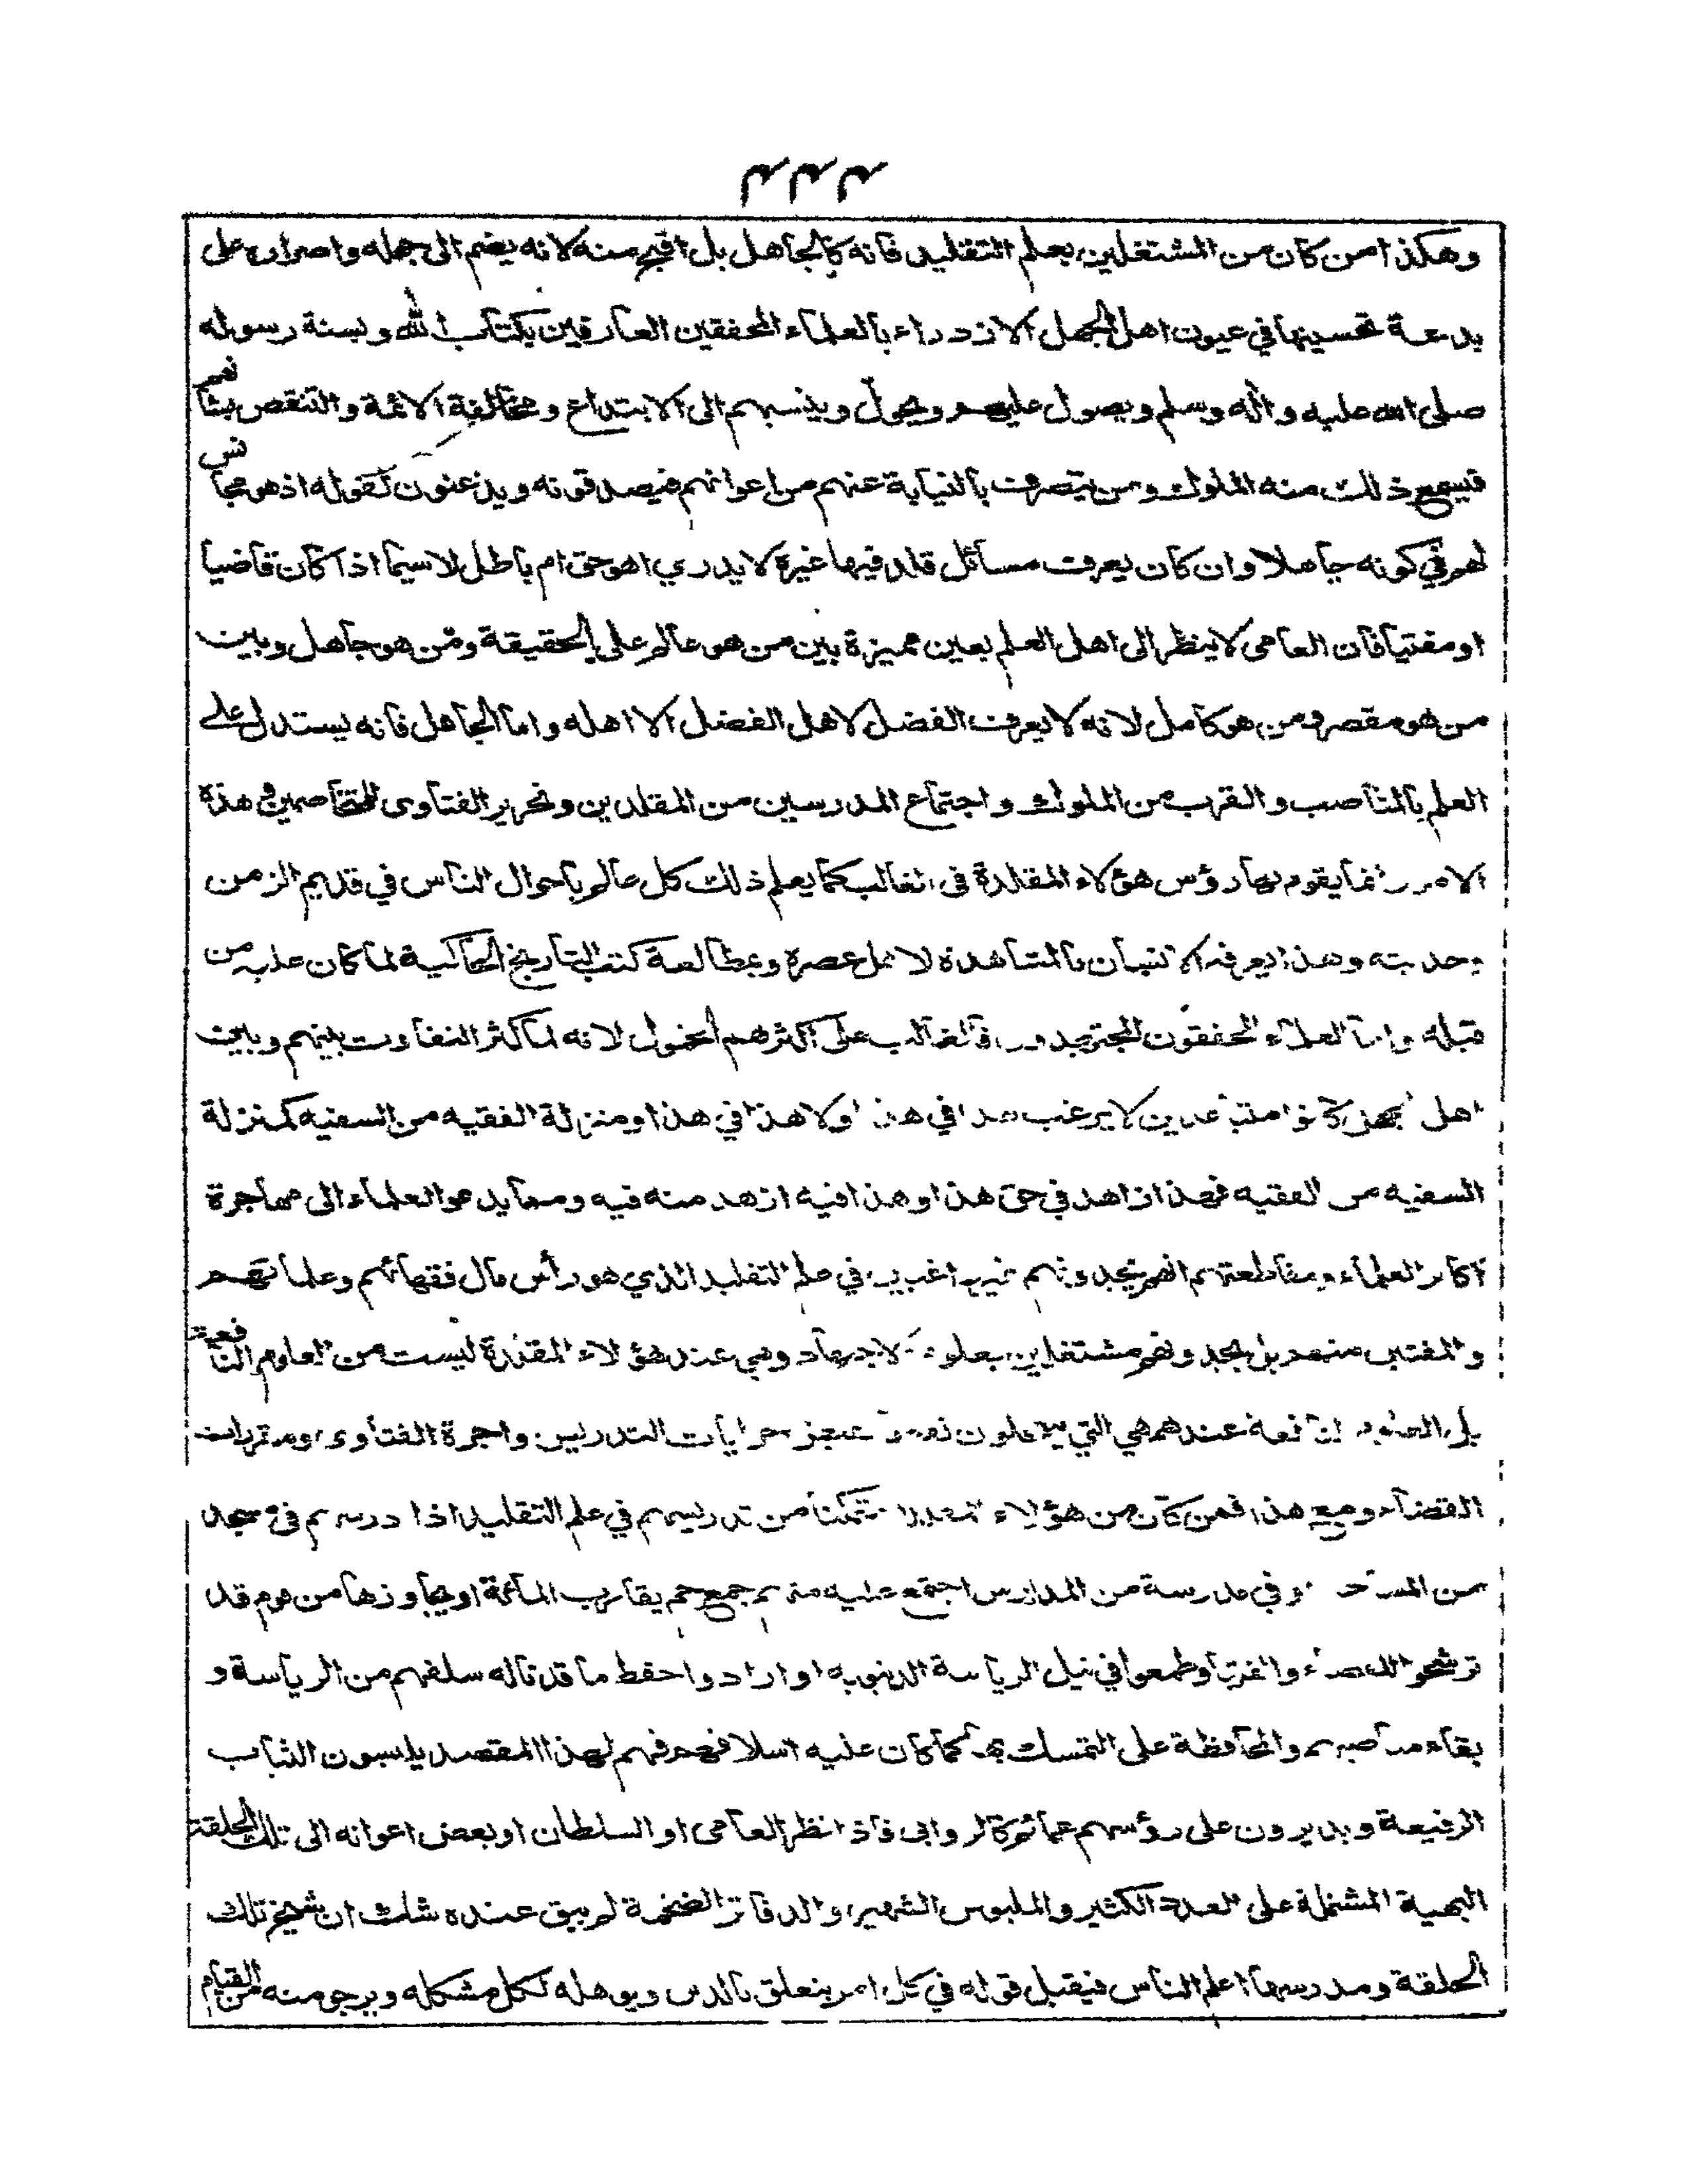 وهكذا من كان من المشتغلين بعلم التقليد فانه كالجاهل بل اقبح منه لانه يضم الى جهله واصراره على
بدعة تحسينها في عيون اهل الجهل الازدراء بالعلماء المحققين العارفين بكتاب الله وبسنة رسوله
صلى الله عليه واله وسلم ويصول عليهم ويجول وينسبهم الى الابتداع ومخالفة الائمة والتنقص بشانهم
فيسمع ذلك منه الملوك ومن يتصرف بالنيابة عنهم من اعوانهم فيصدقونه ويذعنون لقوله اذ هو مجانس
لهم في كونه جاهلا وان كان يعرف مسائل قلد فيها غيره لا يدري اهو حق ام باطل لا سيما اذا كان قاضيا
او مفتيا فان العامى لا ينظر الى اهل العلم بعين مميزة بين من هو عالم على الحقيقة ومن هو جاهل وبين
من هو مقصر ومن هو كامل لانه لا يعرف الفضل لاهل الفضل الا اهله واما الجاهل فانه يستدل على
العلم بالمناصب والقرب من الملوك واجتماع المدرسين من المقلدين وتحرير الفتاوى للمتخاصمين وهذه
الامور انما يقوم بها رؤس هؤلاء المقلدة فى الغالب كما يعلم ذلك كل عالم باحوال الناس في قديم الزمن
وحديثه وهذا يعرفه الانسان بالمشاهدة لاهل عصره وبمطالعة كتب التاريخ الحاكية لما كان عليه من
قبله واما العلماء المحققون المجتهدون فالغالب على اكثرهم الخمول لانه لما كثر التفاوت بينهم وبين
اهل الجهل كانوا متباعدين لا يرغب هذا في هذا ولا هذا في هذا ومنزلة الفقيه من السفيه كمنزلة
السفيه من الفقيه فهذا زاهد في حق هذا وهذا فيه ازهد منه فيه ومما يدعو العلماء الى مهاجرة
اكابر العلماء ومقاطعتهم انهم يجدونهم غير راغبين في علم التقليد الذي هو رأس مال فقهائهم وعلمائهم
والمفتين منهم بل يجدونهم مشتغلين بعلوم الاجتهاد وهي عند هؤلاء المقلدة ليست من العلوم النافعة
بل العلوم النافعة عندهم هي التي يتعجلون نفعها جرايات التدريس واجرة الفتاوى ومقررات
القضاء ومع هذا فمن كان من هؤلاء المقلدة متمكنا من تدريسهم في علم التقليد اذا درسهم في مسجد
من المساجد او في مدرسة من المدارس اجتمع عليه منهم جمع جم يقارب المائة او يجاوزها من قوم قد
ترشحوا للقضاء والفتيا وطمعوا في نيل الرياسة الدنيوية او ارادوا حفظ ما قد ناله سلفهم من الرياسة و
بقاء مناصبهم والمحافظة على التمسك بها كما كان عليه اسلافهم فهم لهذا المقصد يلبسون الثياب
الرفيعة ويديرون على رؤسهم عمائم كالروابى فاذا نظر العامى او السلطان او بعض اعوانه الى تلك الحلقة
البهية المشتملة على العدد الكثير والملبوس الشهير والدفاتر الضخمة لم يبق عنده شك ان شيخ تلك
الحلقة ومدرسها اعلم الناس فيقبل قوله في كل امر يتعلق بالدين ويوهله لكل مشكلة ويرجو منه من القيام